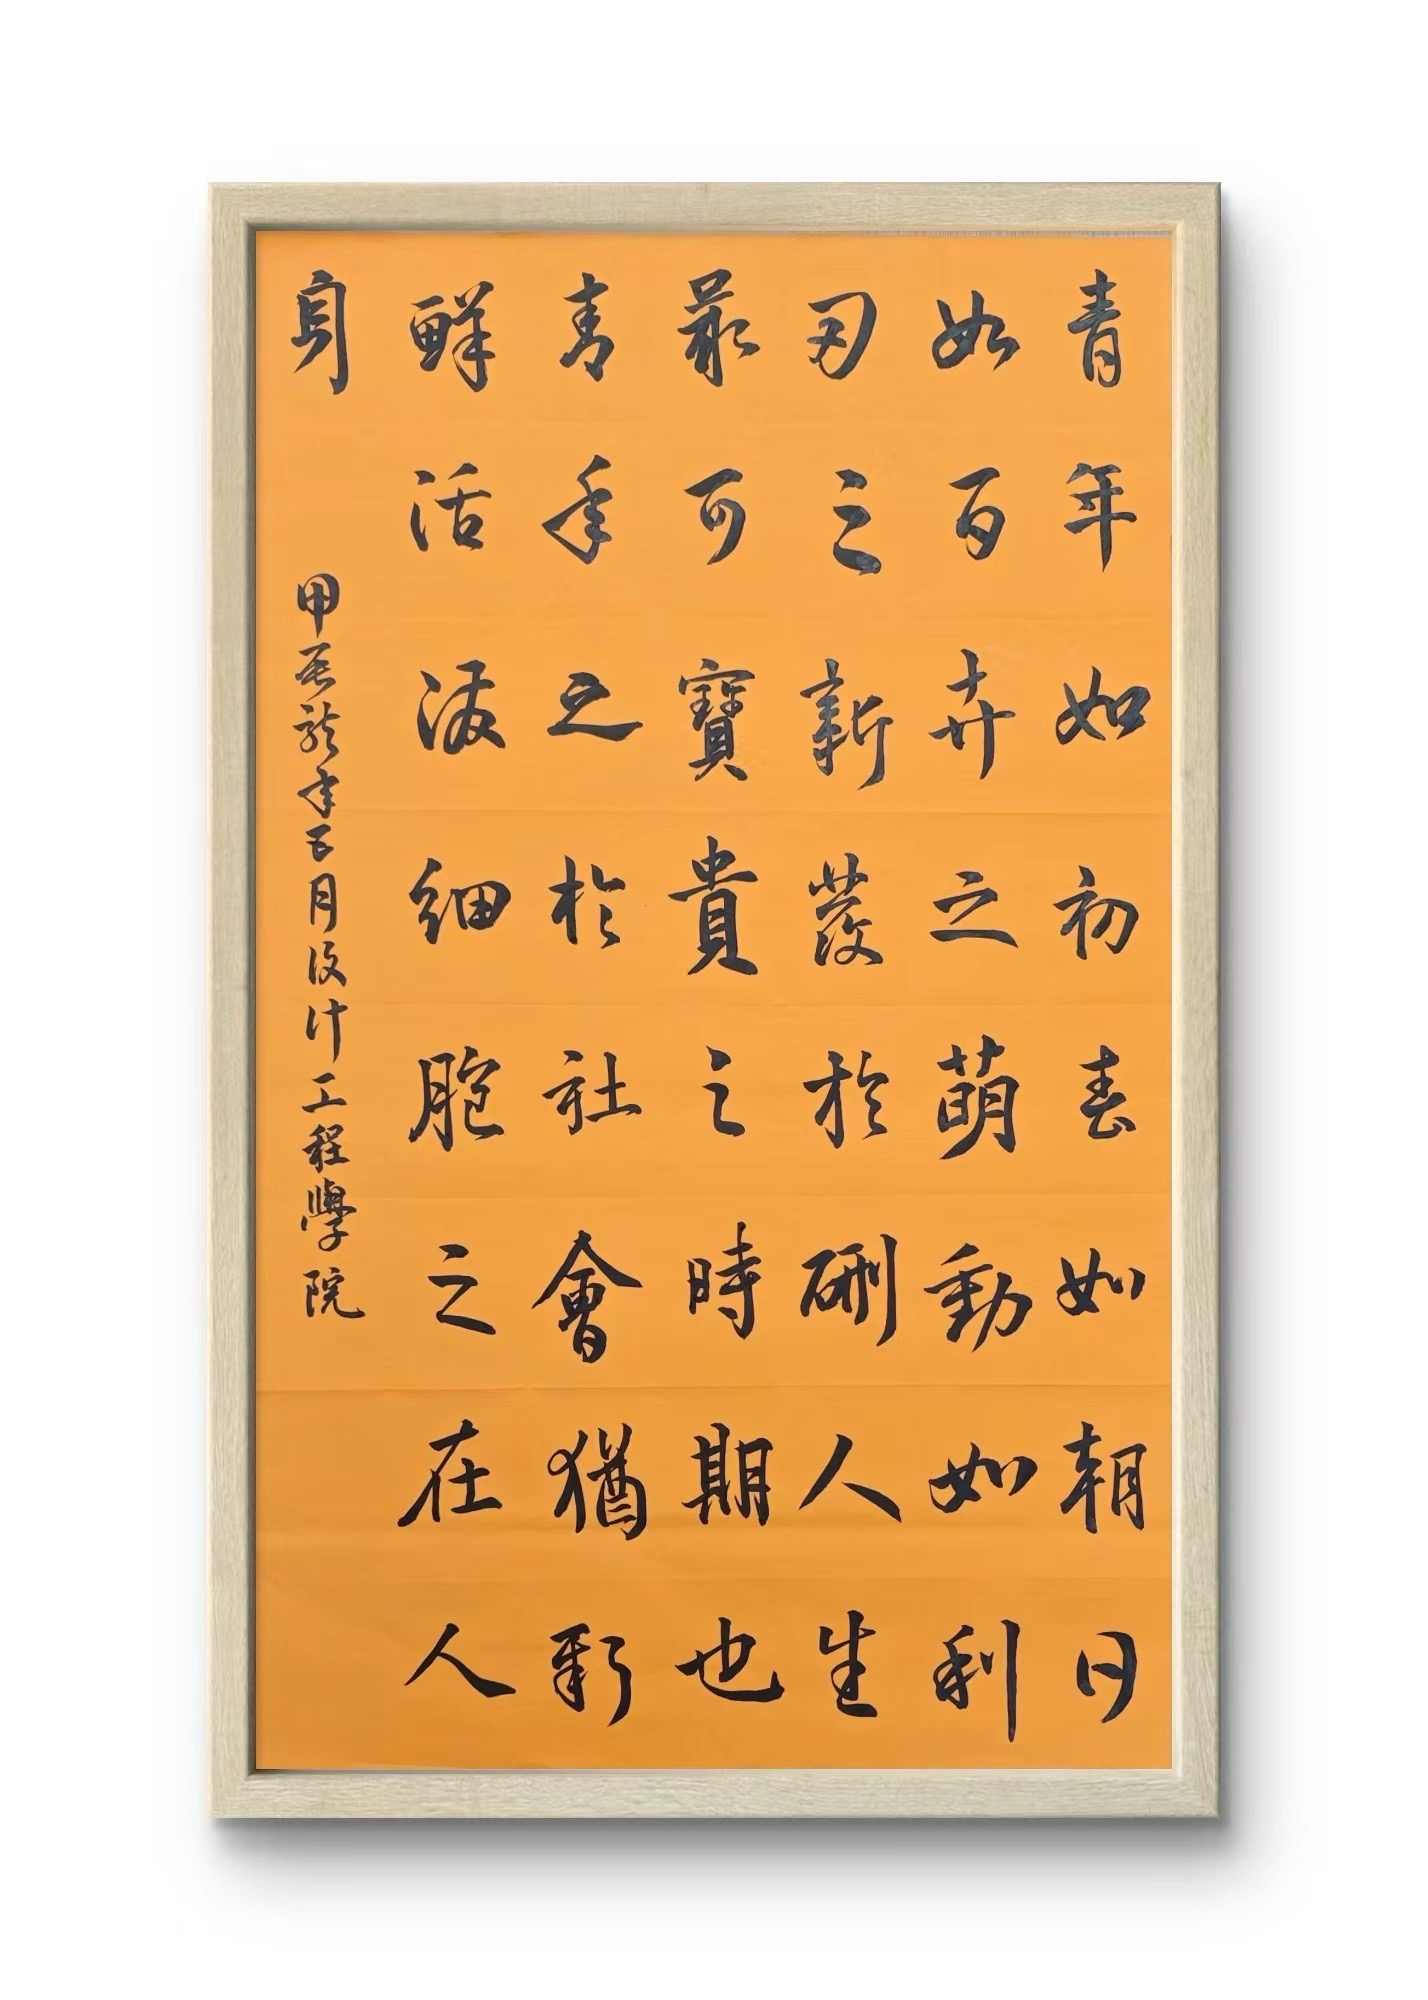 青年如初春如朝日
如百卉之萌動如利
刃之新發於硎人生
最可寶貴之時期也
青年之於社會猶新
鮮活潑細胞之在人
身
甲辰龍年五月設計工程學院